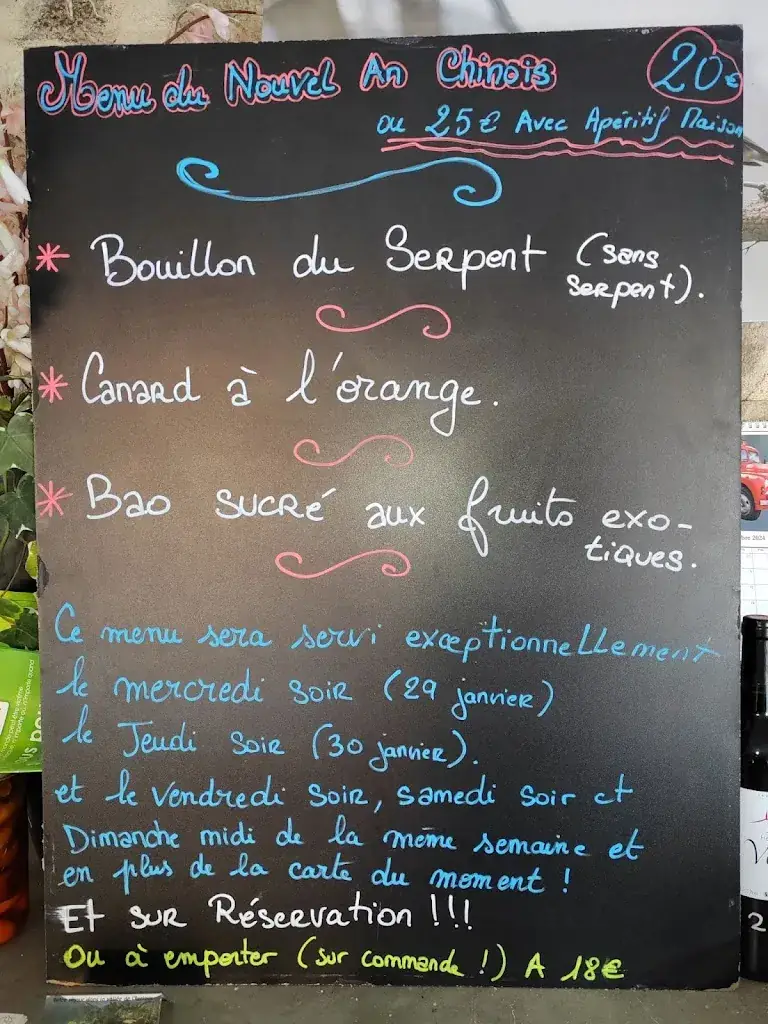 Menu du Nouvel An Chinois 20€
ou 25€ Avec Apéritif Maison
* Bouillon du Serpent (sans
serpent).
* Canard à l'orange.
* Bao sucré aux fruits exo-
tiques.
Ce menu sera servi exceptionnellement
le mercredi soir (29 janvier)
le Jeudi soir (30 janvier).
et le vendredi soir, samedi soir et
Dimanche midi de la même semaine et
en plus de la carte du moment !
Et sur Réservation !!!
Ou à emporter (sur commande !) A 18€
2024